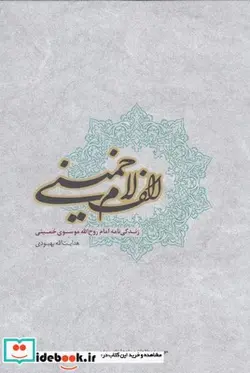 الف لام خمینی
زندگی‌نامه امام روح‌الله موسوی خمینی
هدایت‌الله بهبودی
مشاهده و خرید این کتاب در:
iidebook.com